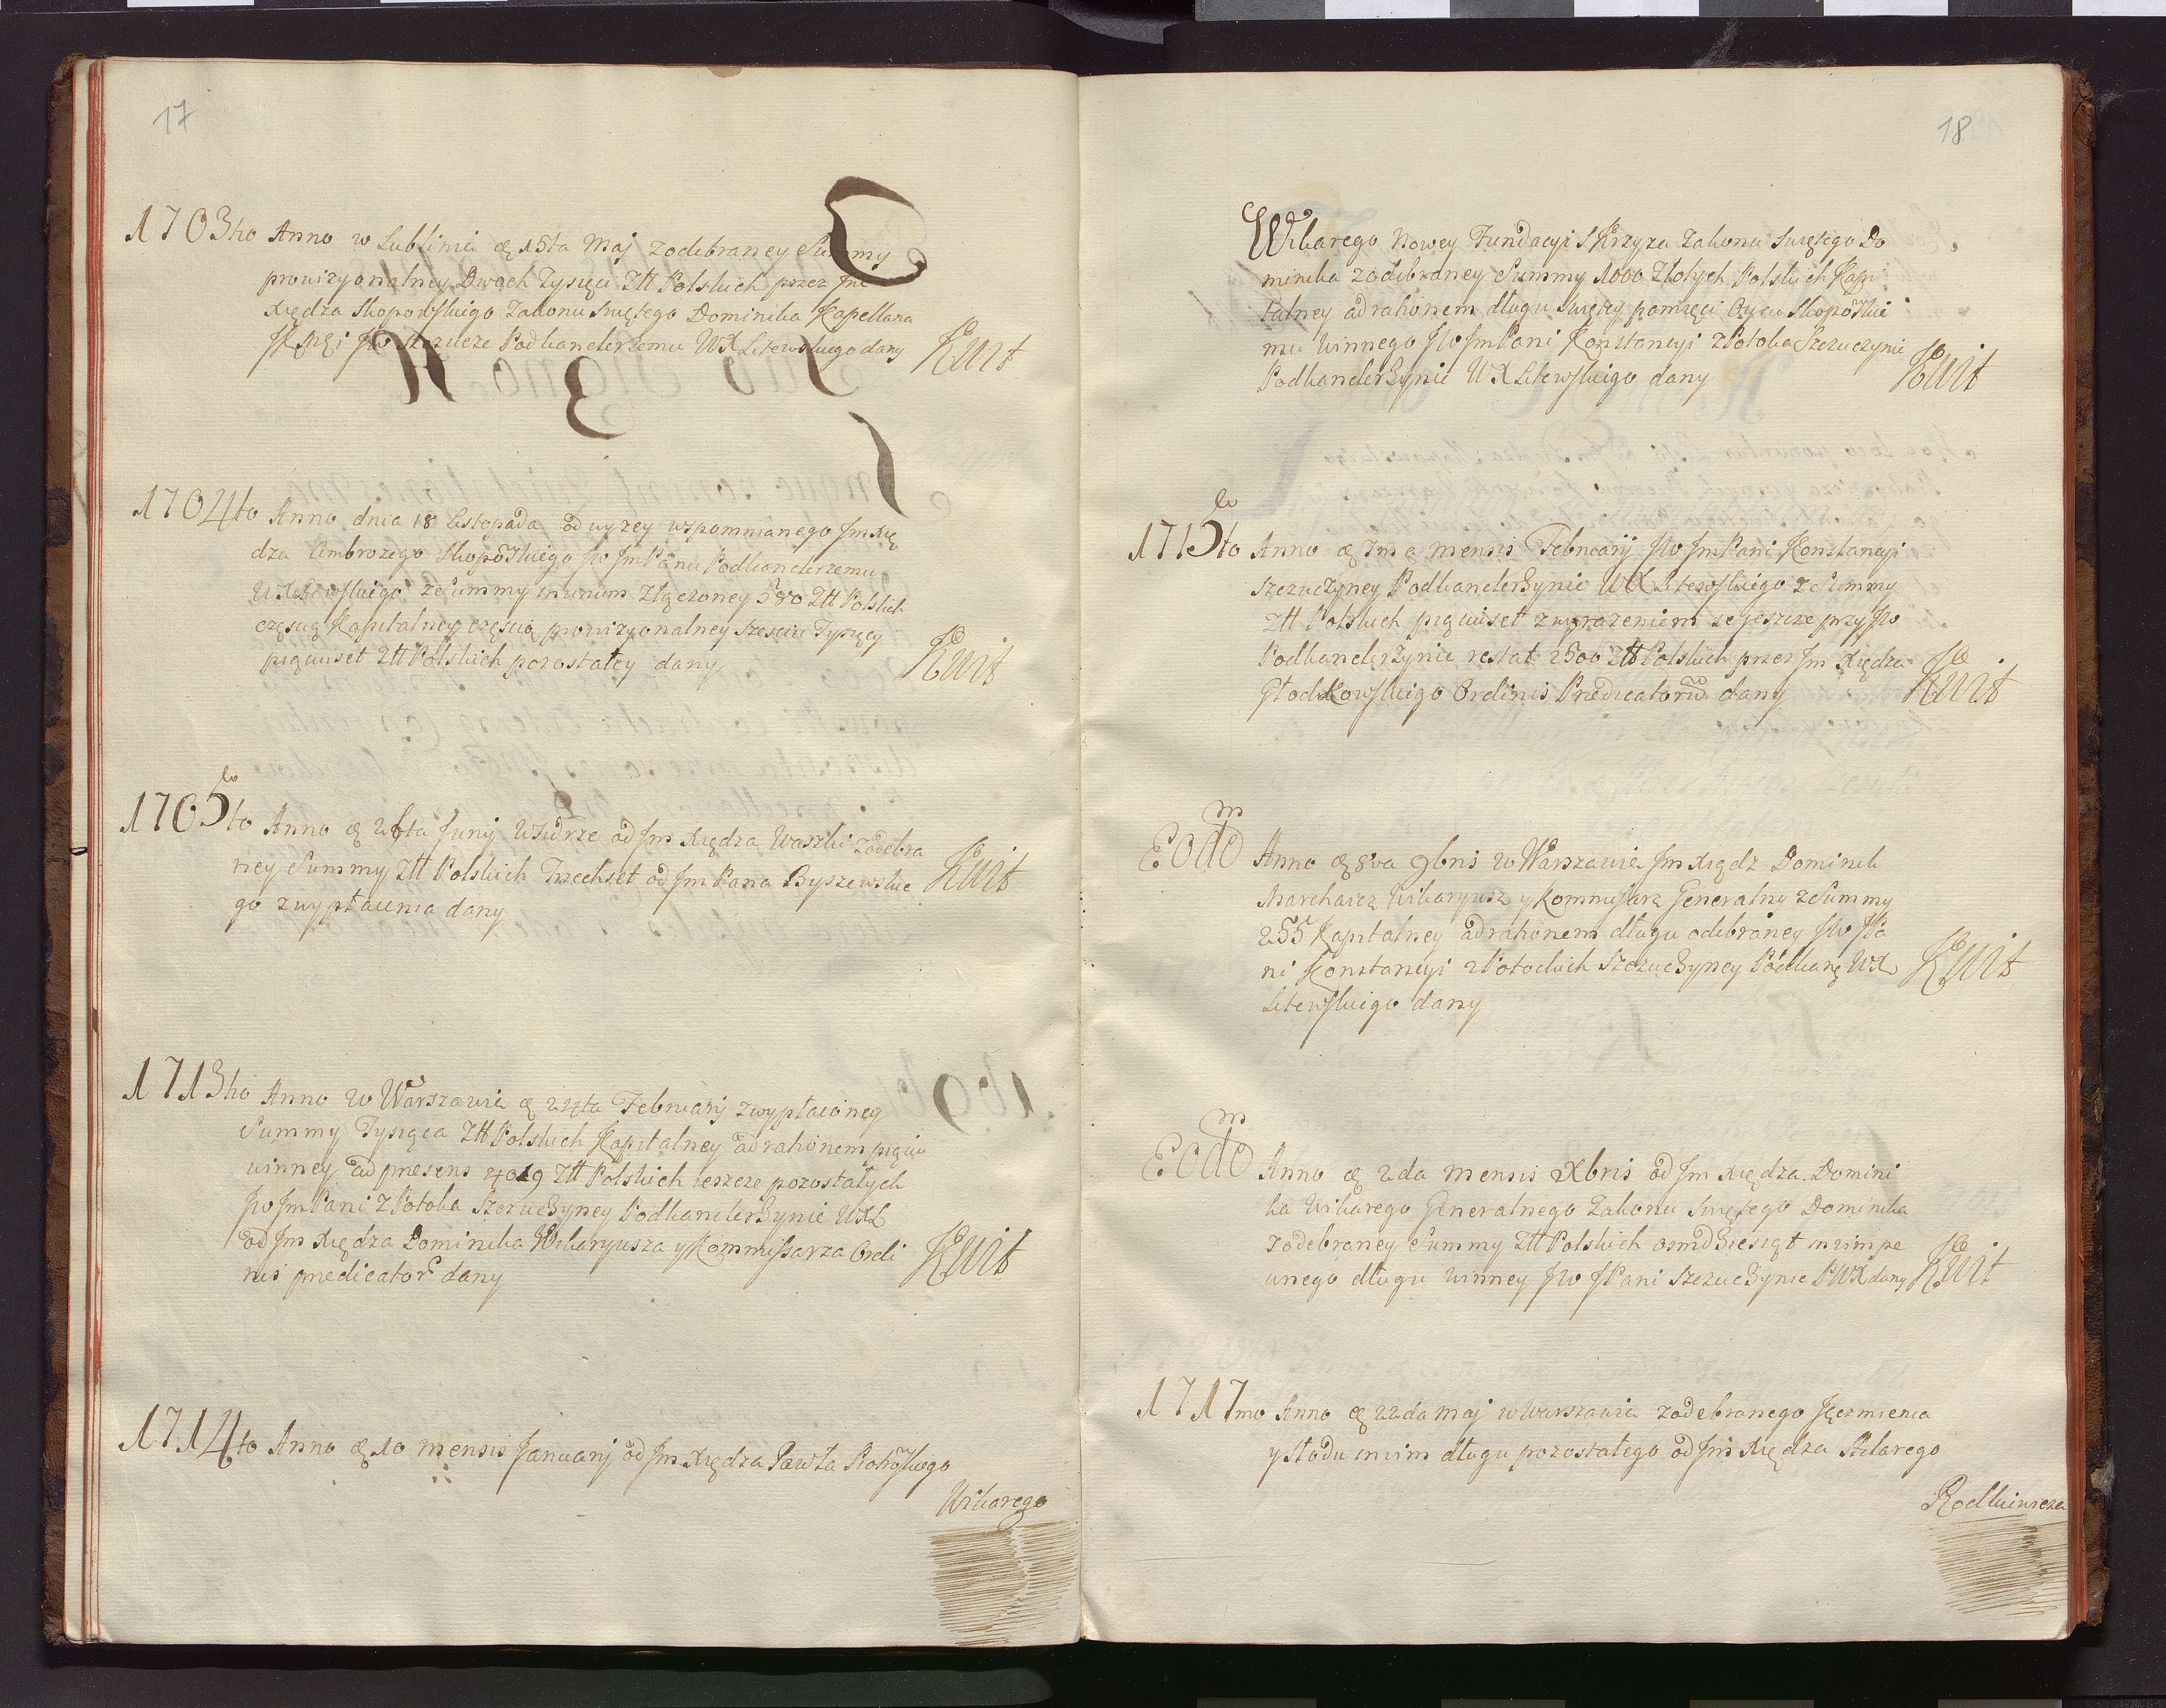 17
1703tio Anno w Lublinie die 15ta Maj zodebraney Summy
prowizyonalney Dwoch Tysięcy Ztt Polskich przez Jmć
Xiędza Skopowskiego Zakonu Swiętego Dominika Kapellana
Podkanclerzemu WX Litewskiego dany Kwit
1704to Anno dnia 18 Listopada od wyzey wspomnianego Jm Xię
dza Ambrozego Skopowskiego Jw Jm Panu Podkanclerzemu
WX Litewskiego zeSummy in unum Złączoney 580 Ztt Polskich
częscią Kapitalney częscią prowizyonalney Szesciu Tysięcy
pięciuset Ztt Polskich pozostałey dany Kwit
1705to Anno die 26ta Junij od Jm Xiędza Waszki zodebra
ney Summy Ztt Polskich Trzechset od Jm Pana Byszewskie
go zwypłacenia dany Kwit
1713tio Anno w Warszawie die 24ta Februarij zwypłaconey
Summy Tysiąca Ztt Polskich Kapitalney ad rationem
winney ad presens 4019 Ztt Polskich ieszcze pozostałych
Jw Jm Pani z Potoka Szczuczyney Podkanclerzynie WXL
od Jm Xiędza Dominika Wikaryusza y Kommissarza Ordi
nis predicator dany Kwit
1714to Anno die 10 mensis Januarij od Jm Xiędza Pawła
Wikarego
18
Wikarego Nowey Fundacyi S Krzyza Zakonu Swiętego Do
minika zodebraney Summy 1000 Złotych Polskich Kapi
talney ad rationem długu Swiętey pamięci Oycu Skopowskie
mu winnego Jw Jm Pani Konstancyi z Potoka Szczuczynie
Podkanclerzynie WX Litewskiego dany Kwit
1715to Anno die 7ma mensis Februarij Jw Jm Pani Konstancyi
Szczuczyney Podkanclerzynie WX Litewskiego ze Summy
Ztt Polskich pięciuset z wyrazeniem se jeszcze przy Jw
Podkanclerzynie restat 2500 Ztt Polskich przez Jm Xiędza
Głodkowskiego Ordinis Prædicatorum dany Kwit
Eodem Anno die 8va 9bris w Warszawie Jm Xiądz Dominik
Wikaryusz y Kommissarz Generalny zeSummy
255 Kapitalney ad rationem długu odebraney Jw JPa
ni Konstancyi z Potockich Szczuczyney Podkanc WX
Litewskiego dany Kwit
Eodem Anno die 2da Mensis Xbris od Jm Xiędza Domini
ka Wikarego Generalnego Zakonu Swiętego Dominika
zodebraney Summy Ztt Polskich osmdziesiąt in vim pe
wnego długu winney Jw JPani Szczuczynie PWX dany Kwit
1717mo Anno die 22da Maj w Warszawie zodebranego Jęczmienia
y Słodu in vim długu pozostałego od Jm Xiędza
Rodkiewicza